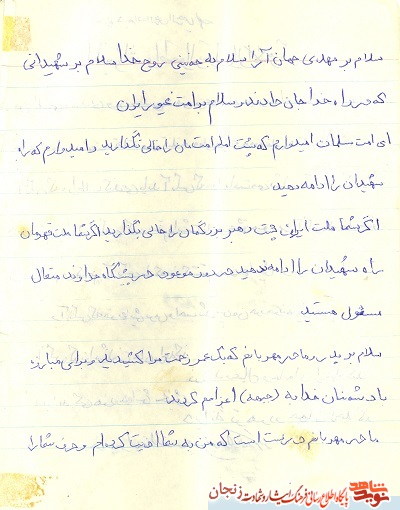 سلام بر مهدی جهان آرا سلام به خمینی روح خدا سلام بر شهیدانی
که در راه خدا جان دادند و سلام بر امت غیور ایران
ای امت مسلمان امیدوارم که پشت امام امت مان را خالی نگذارید و امیدوارم که راه
شهیدان را ادامه دهید
اگر شما ملت ایران پشت رهبر بزرگمان را خالی بگذارید اگر شما ملت قهرمان
راه شهیدان را ادامه ندهید در روز موعود در پیشگاه خداوند متعال
مسئول هستید
سلام بر پدر و مادر مهربانم که یک عمر زحمت مرا کشیدید و برای مبارزه
با دشمنان خدا به (جبهه) اعزام کردند
مادر مهربانم درست است که من به شما اذیت کرده‌ام و حرف شما را
نوید شاهد
پایگاه اطلاع رسانی فرهنگ ایثار و شهادت زنجان